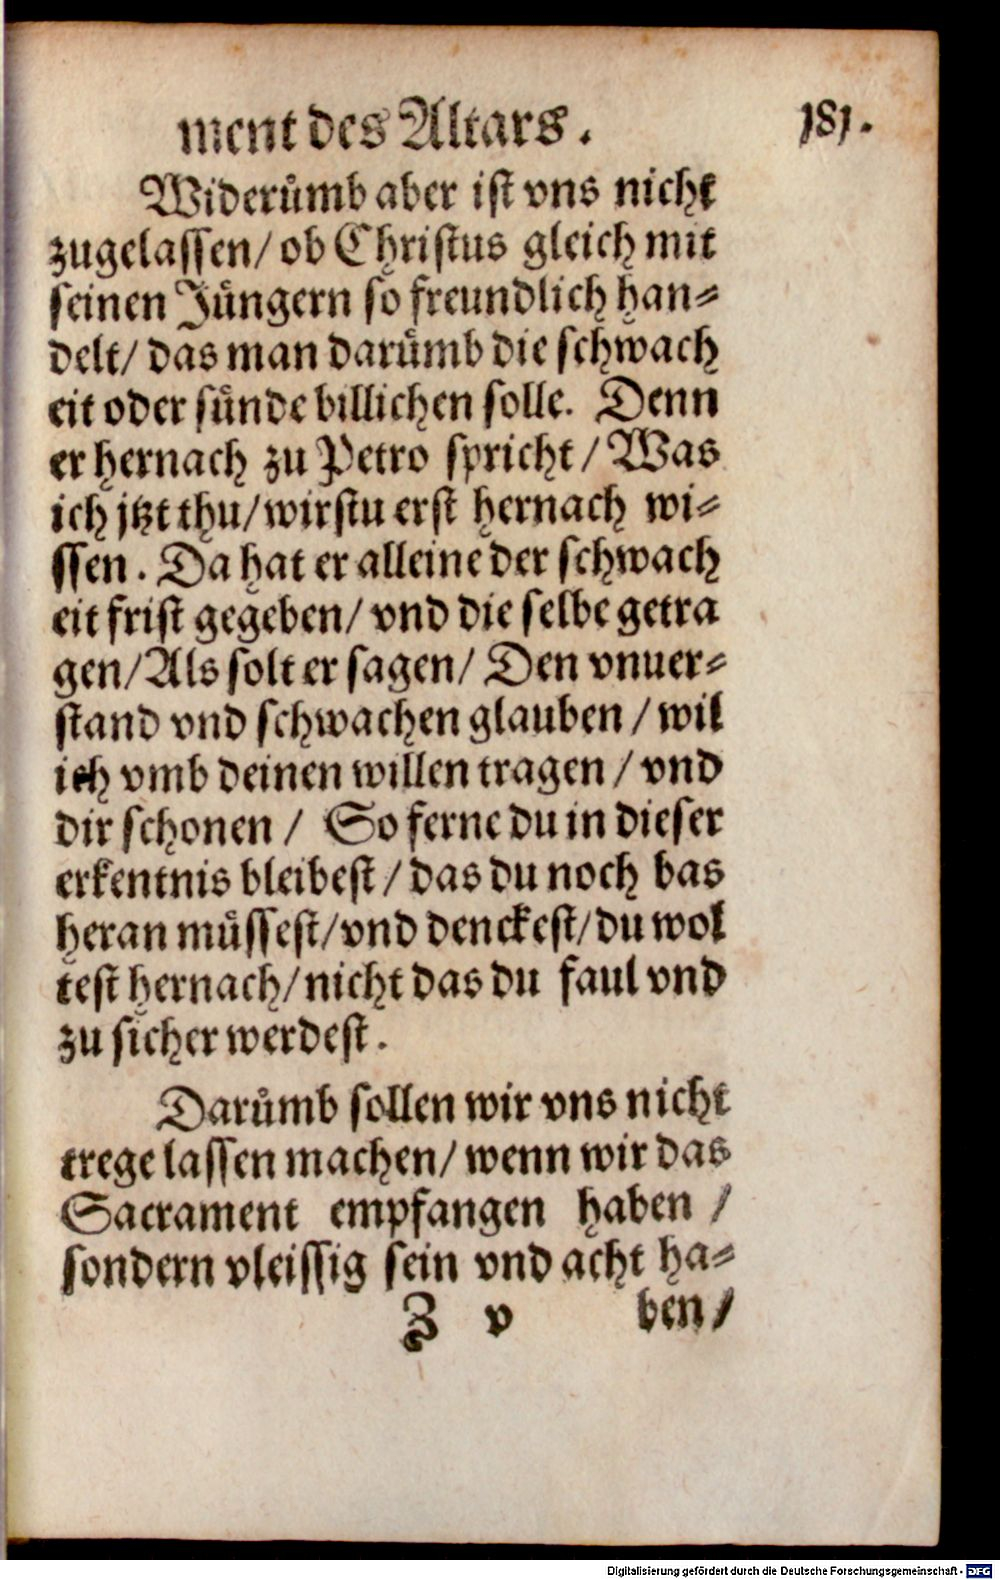 ment des Altars. 181.
Widerůmb aber ist vns nicht
zugelassen/ ob Christus gleich mit
seinen Jüngern so freundlich han⸗
delt/ das man darůmb die schwach
eit oder sünde billichen solle. Denn
er hernach zu Petro spricht/ Was
ich jtzt thu/ wirstu erst hernach wi⸗
ssen. Da hat er alleine der schwach
eit frist gegeben/ vnd die selbe getra
gen/ Als solt er sagen/ Den vnuer⸗
stand vnd schwachen glauben/ wil
ich vmb deinen willen tragen/ vnd
dir schonen/ So ferne du in dieser
erkentnis bleibest/ das du noch bas
heran müssest/ vnd denckest/ du wol
test hernach/ nicht das du faul vnd
zu sicher werdest.
Darůmb sollen wir vns nicht
trege lassen machen/ wenn wir das
Sacrament empfangen haben/
sondern vleissig sein vnd acht ha⸗
Z v ben/
Digitalisierung gefördert durch die Deutsche Forschungsgemeinschaft - DFG